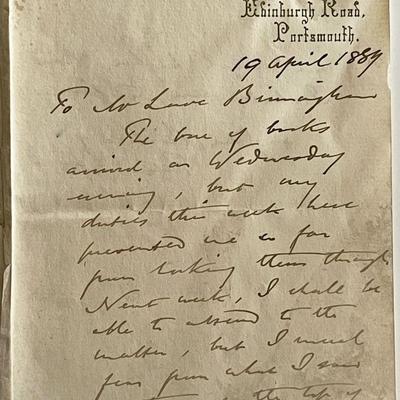 Edinburgh Road,
Portsmouth.
19 April 1889
To Mr Lowe Birmingham
The box of books
arrived on Wednesday
evening, but my
duties this week have
prevented me so far
from looking them through.
Next week, I shall be
able to attend to the
matter, but I much
fear from what I saw
the top of